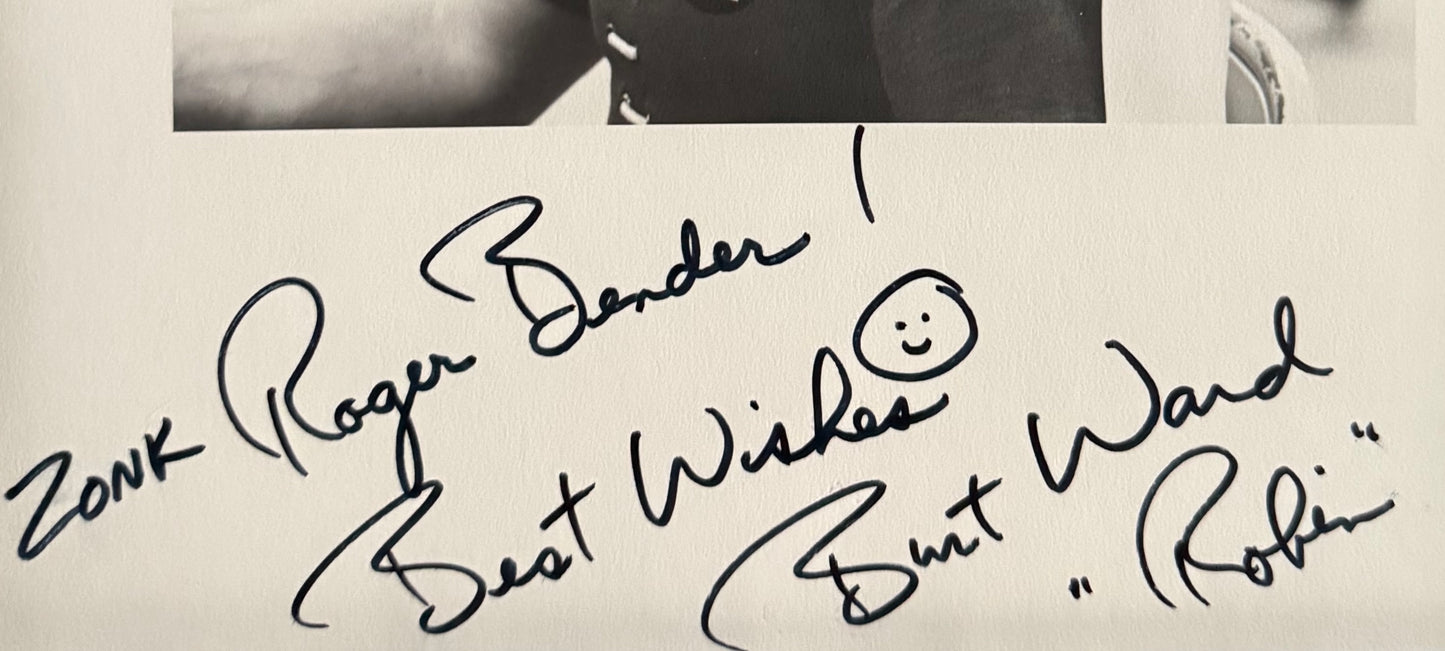 ZONK Roger Bender!
Best Wishes
Burt Ward
"Robin"